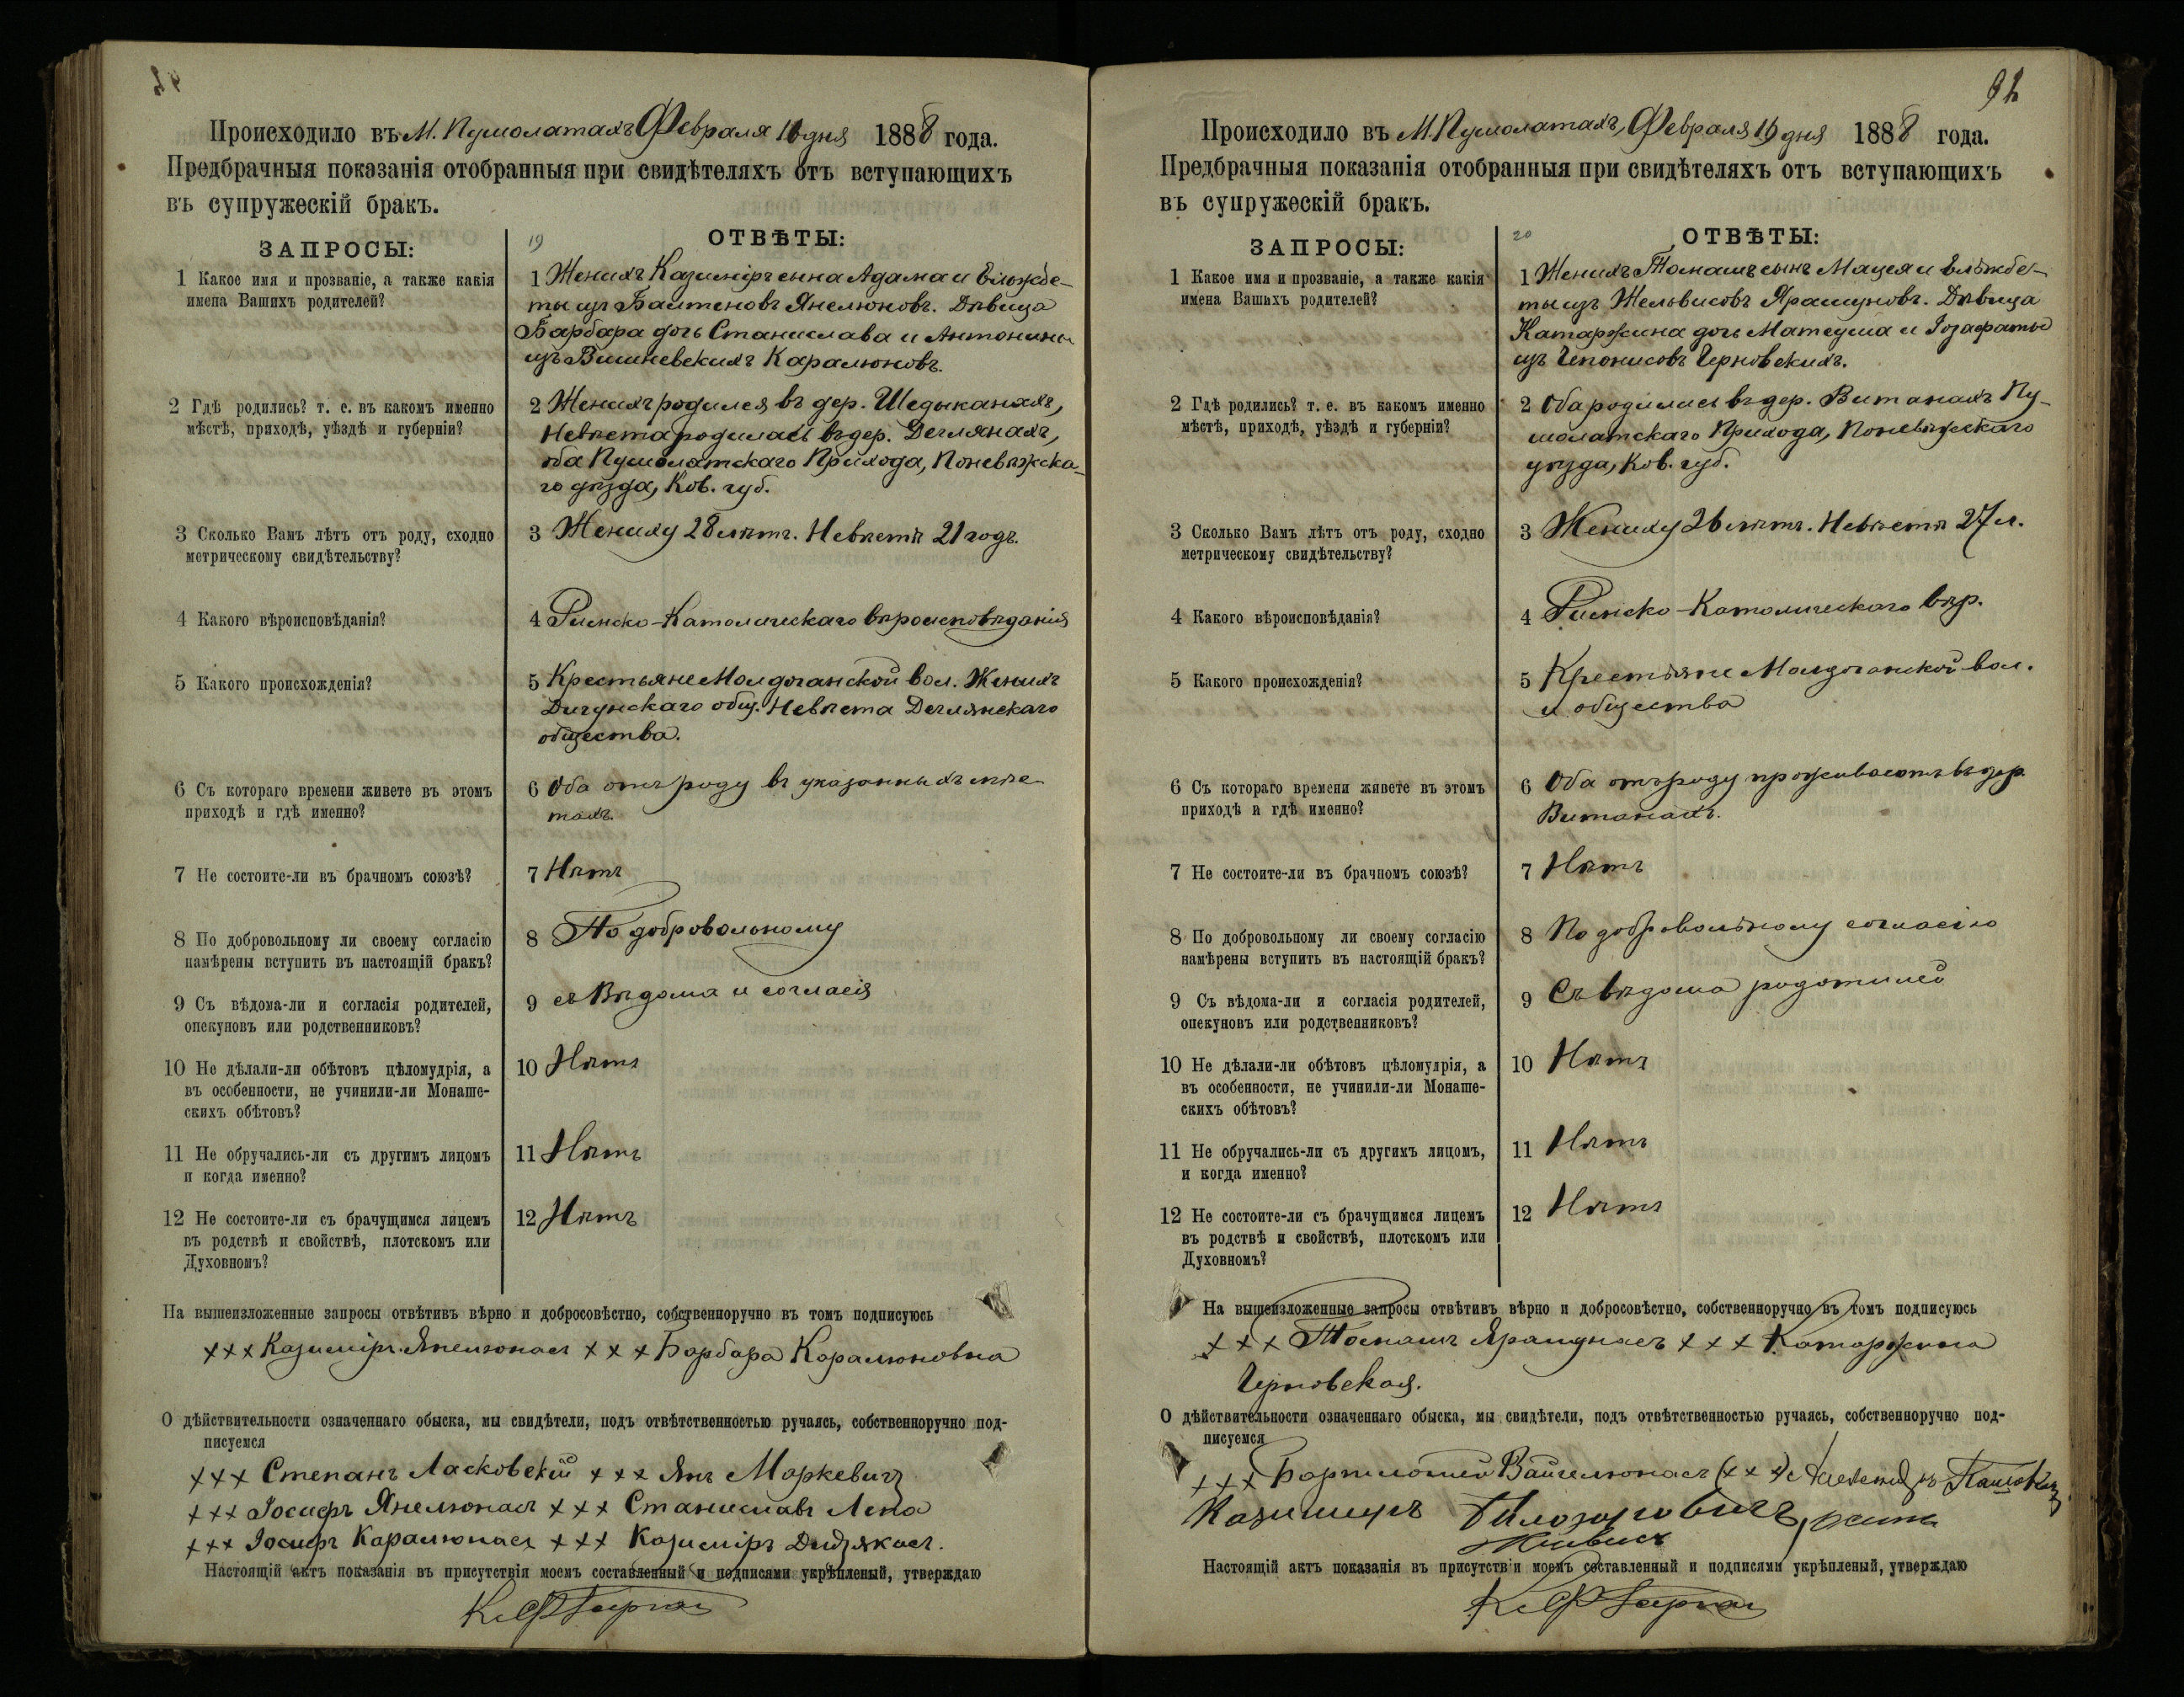 Происходило въ М. Пушолатахъ Февраля 16 дня 1888 года.
Предбрачныя показанія отобранныя при свидѣтеляхъ отъ вступающихъ
въ супружескій бракъ.
ЗАПРОСЫ:
19 ОТВѢТЫ:
1 Какое имя и прозваніе, а также какія
имена Вашихъ родителей?
1 Женихъ Казиміръ сынъ Адама и Ельжбе-
ты изъ Балтеновъ Янелюновъ. Дѣвица
Барбара дочь Станислава и Антонины
изъ Вишневскихъ Каралюновъ.
2 Гдѣ родились? т. е. въ какомъ именно
мѣстѣ, приходѣ, уѣздѣ и губерніи?
2 Женихъ родился въ дер. Шедыканахъ,
Невѣста родилась въ дер. Деглянахъ,
оба Пушолатскаго Прихода, Поневѣжска-
го уѣзда, Ков. губ.
3 Сколько Вамъ лѣтъ отъ роду, сходно
метрическому свидѣтельству?
3 Жениху 28 лѣтъ. Невѣстѣ 21 годъ.
4 Какого вѣроисповѣданія?
4 Римско-Католическаго вѣроисповѣданія
5 Какого происхожденія?
5 Крестьяне Молдочанской вол. Женихъ
общ. Невѣста Деглянскаго
общества.
6 Съ котораго времени живете въ этомъ
приходѣ и гдѣ именно?
6 Оба отъ роду въ указанныхъ мѣс-
тахъ.
7 Не состоите-ли въ брачномъ союзѣ?
7 Нѣтъ
8 По добровольному ли своему согласію
намѣрены вступить въ настоящій бракъ?
8 По добровольному
9 Съ вѣдома-ли и согласія родителей,
опекуновъ или родственниковъ?
9 съ Вѣдома и согласія
10 Не дѣлали-ли обѣтовъ цѣломудрія, а
въ особенности, не учинили-ли Монаше-
скихъ обѣтовъ?
10 Нѣтъ
11 Не обручались-ли съ другимъ лицомъ
и когда именно?
11 Нѣтъ
12 Не состоите-ли съ брачущимся лицемъ
въ родствѣ и свойствѣ, плотскомъ или
Духовномъ?
12 Нѣтъ
На вышеизложенные запросы отвѣтивъ вѣрно и добросовѣстно, собственноручно въ томъ подписуюсь
+++ Казиміръ Янелюнасъ +++ Барбара Каралюновна
О дѣйствительности означеннаго обыска, мы свидѣтели, подъ отвѣтственностью ручаясь, собственноручно под-
писуемся
+++ Степанъ Ласковскій +++ Янъ Маркевичъ
+++ Іосифъ Янелюнасъ +++ Станиславъ Лепа
+++ Іосифъ Каралюнасъ +++ Казиміръ
Настоящій актъ показанія въ присутствія моемъ составленный и подписями укрѣпленый, утверждаю
92
Происходило въ М. Пушолатахъ, Февраля 16 дня 1888 года.
Предбрачныя показанія отобранныя при свидѣтеляхъ отъ вступающихъ
въ супружескій бракъ.
ЗАПРОСЫ:
20 ОТВѢТЫ:
1 Какое имя и прозваніе, а также какія
имена Вашихъ родителей?
1 Женихъ Томашъ сынъ Мацея и Ельжбе-
ты изъ Жельвисовъ Ярашуновъ. Дѣвица
Катаржина дочь Матеуша и Іозафаты
изъ Чепонисовъ Черновскихъ.
2 Гдѣ родились? т. е. въ какомъ именно
мѣстѣ, приходѣ, уѣздѣ и губерніи?
2 Оба родились въ дер. Витанахъ Пу-
шолатскаго Прихода, Поневѣжскаго
уѣзда, Ков. губ.
3 Сколько Вамъ лѣтъ отъ роду, сходно
метрическому свидѣтельству?
3 Жениху 26 лѣтъ. Невѣстѣ 27 л.
4 Какого вѣроисповѣданія?
4 Римско-Католическаго вѣр.
5 Какого происхожденія?
5 Крестьяне Молдочанской вол.
и общества
6 Съ котораго времени живете въ этомъ
приходѣ и гдѣ именно?
6 Оба отъ роду проживаютъ въ дер.
Витанахъ.
7 Не состоите-ли въ брачномъ союзѣ?
7 Нѣтъ
8 По добровольному ли своему согласію
намѣрены вступить въ настоящій бракъ?
8 По добровольному согласію
9 Съ вѣдома-ли и согласія родителей,
опекуновъ или родственниковъ?
9 Съ вѣдома родителей
10 Не дѣлали-ли обѣтовъ цѣломудрія, а
въ особенности, не учинили-ли Монаше-
скихъ обѣтовъ?
10 Нѣтъ
11 Не обручались-ли съ другимъ лицомъ,
и когда именно?
11 Нѣтъ
12 Не состоите-ли съ брачущимся лицемъ
въ родствѣ и свойствѣ, плотскомъ или
Духовномъ?
12 Нѣтъ
На вышеизложенные запросы отвѣтивъ вѣрно и добросовѣстно, собственноручно въ томъ подписуюсь
+++ Томашъ Ярашунасъ +++ Катаржина
Черновская.
О дѣйствительности означеннаго обыска, мы свидѣтели, подъ отвѣтственностью ручаясь, собственноручно под-
писуемся
+++ Бартломей
Казимиръ
Настоящій актъ показанія въ присутствіи моемъ составленный и подписями укрѣпленый, утверждаю